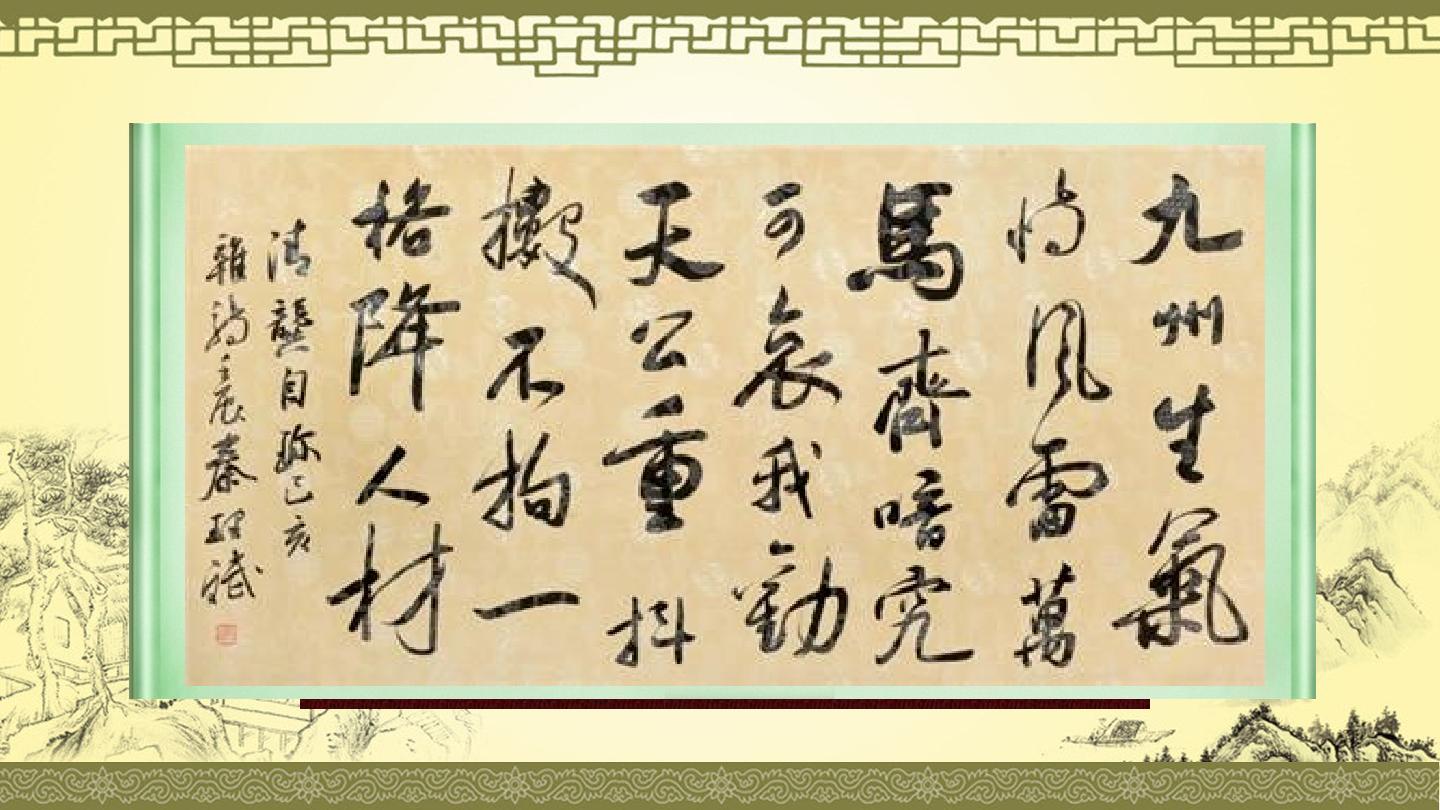 九州生氣
恃風雷萬
馬齊喑究
可哀我勸
天公重抖
擻不拘一
格降人材
清龔自珍己亥
雜詩壬辰秦